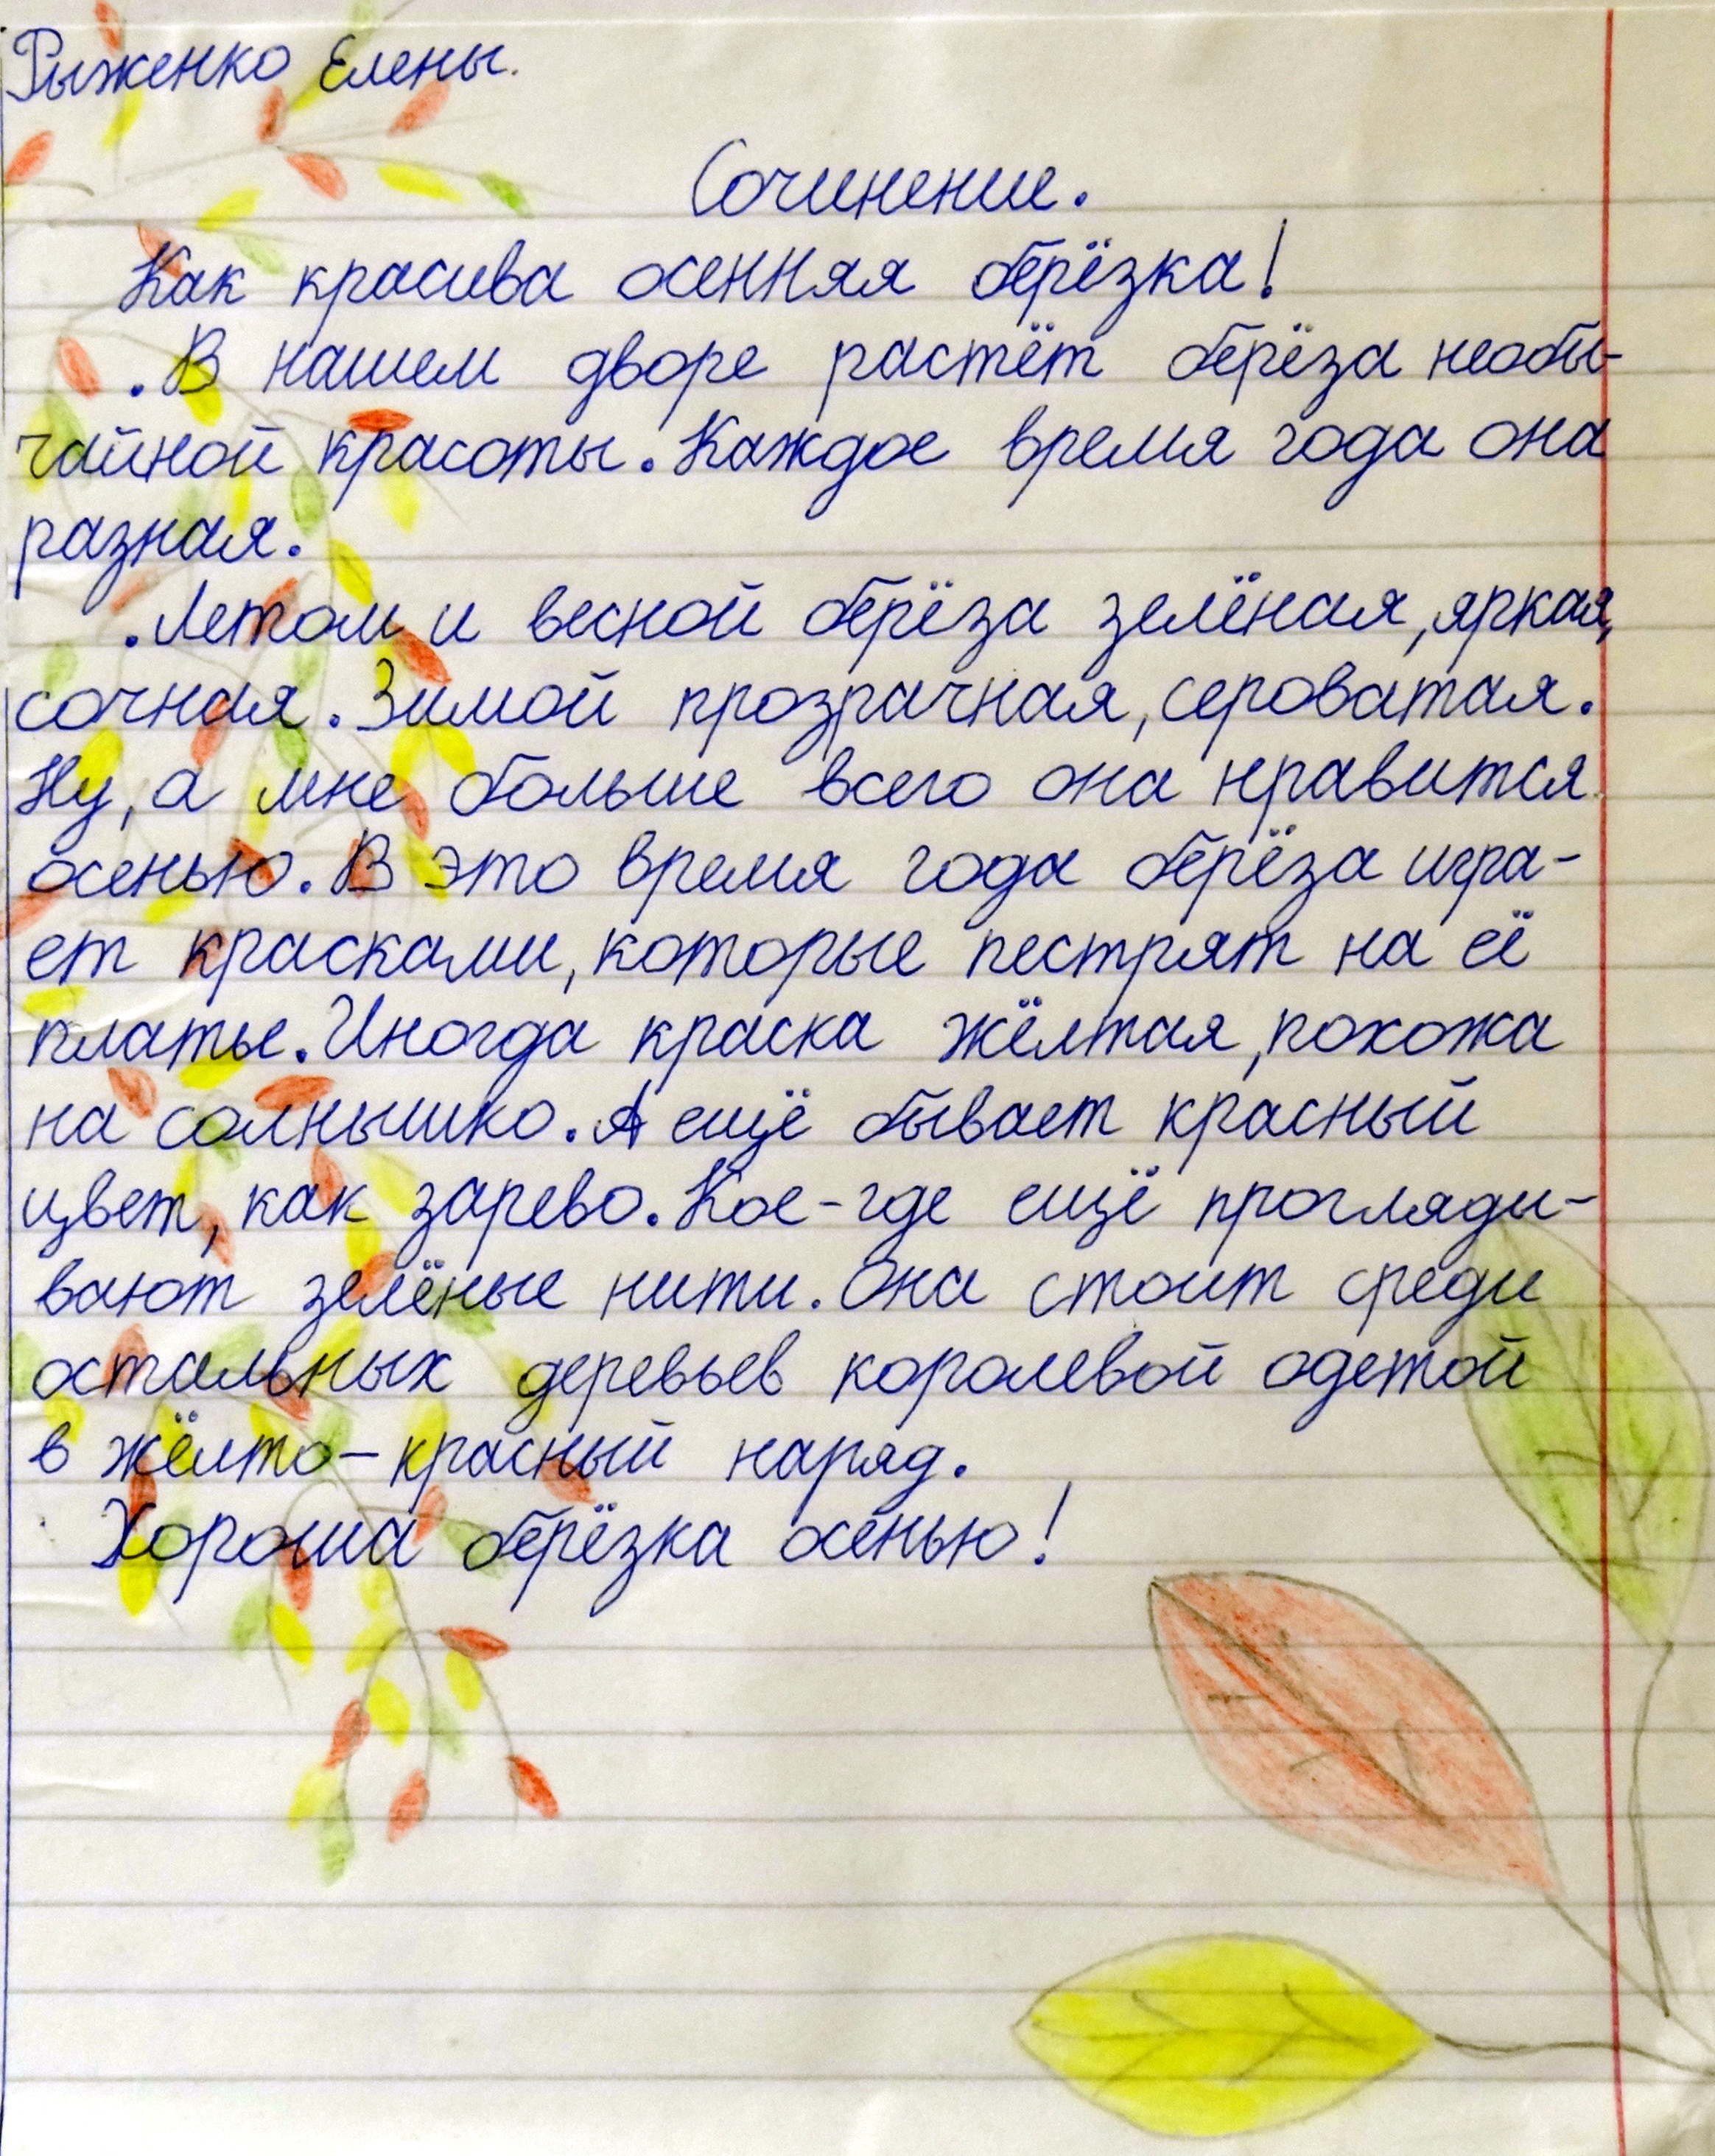 Рыженко Елены.
Сочинение.
Как красива осенняя берёзка!
. В нашем дворе растёт берёза необы-
чайной красоты. Каждое время года она
разная.
. Летом и весной берёза зелёная, яркая,
сочная. Зимой прозрачная, сероватая.
Ну, а мне больше всего она нравится
осенью. В это время года берёза игра-
ет красками, которые пестрят на её
платье. Иногда краска жёлтая, похожа
на солнышко. А ещё бывает красный
цвет, как зарево. Кое-где ещё прогляды-
вают зелёные нити. Она стоит среди
остальных деревьев королевой одетой
в жёлто-красный наряд.
Хороша берёзка осенью!